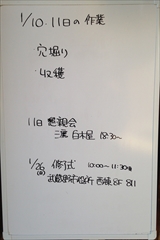 1/10.11日の作業
穴堀り
収穫
11日 懇親会
三鷹 白木屋 18:30〜
1/26 修了式 10:00〜11:30
武蔵野市役所 西棟8F 811